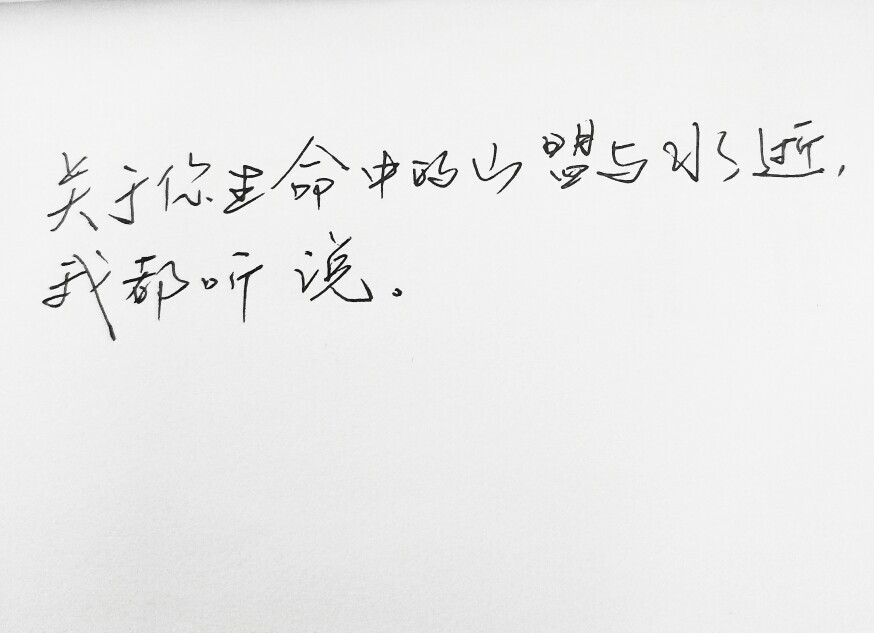 关于你生命中的山盟与水逝,
我都听说。